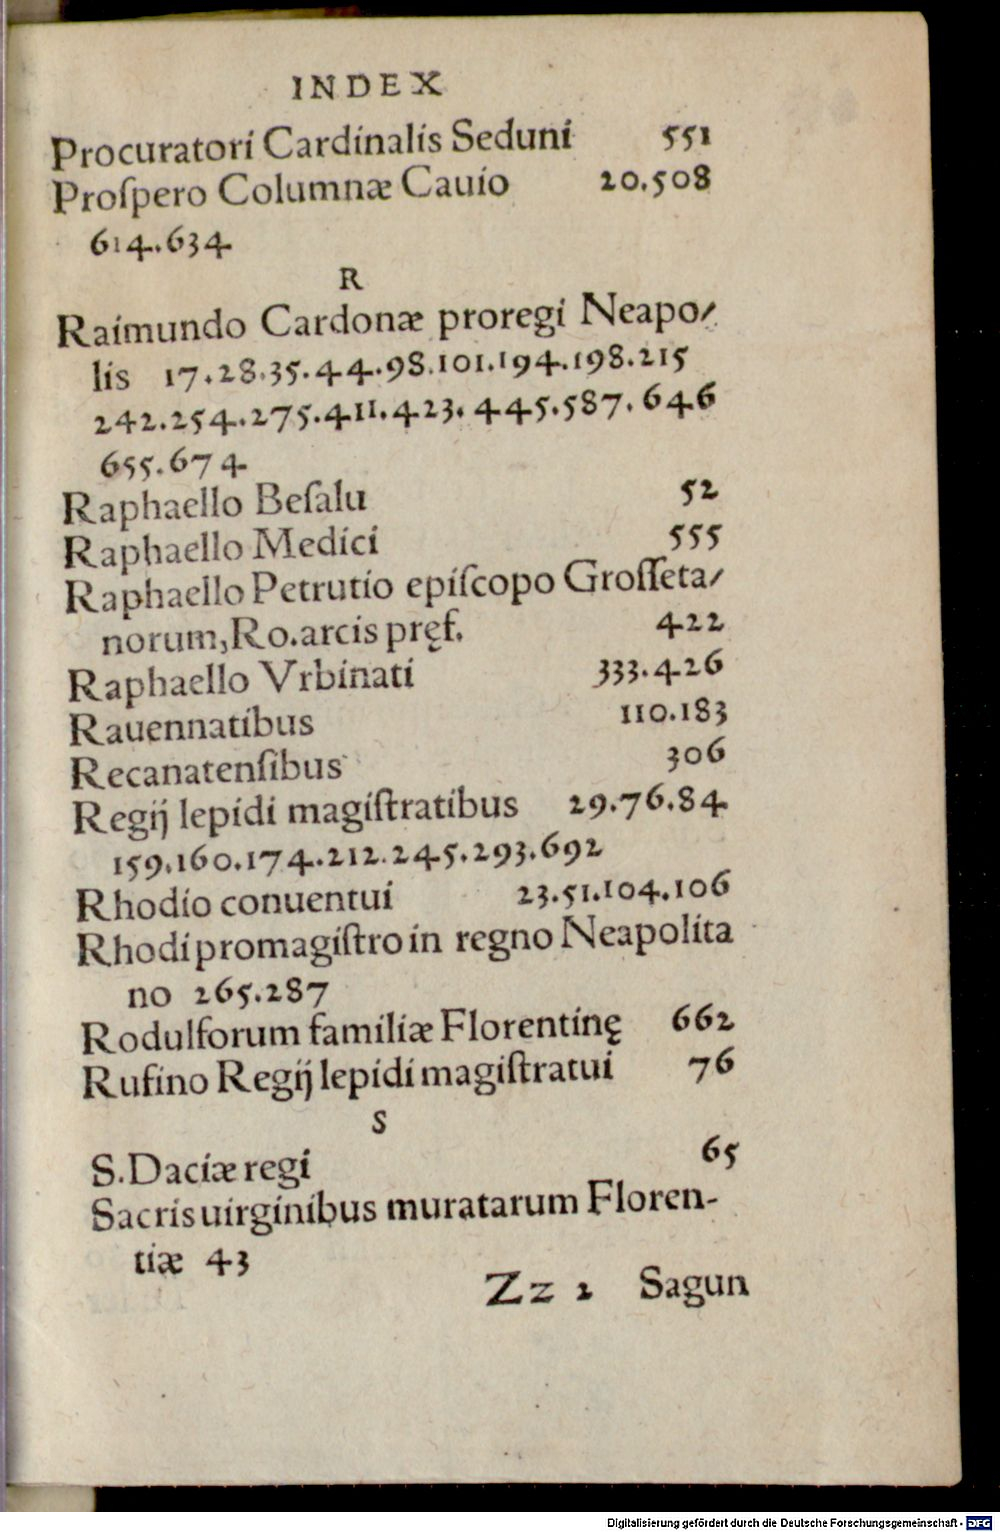 INDEX
Procuratori Cardinalis Seduni 551
Proſpero Columnæ Cauio 20.508
614.634
R
Raimundo Cardonæ proregi Neapo⸗
lis 17.28.35.44.98.101.194.198.215
242.254.275.411.423.445.587.646
655.674
Raphaello Beſalu 52
Raphaello Medici 555
Raphaello Petrutio epiſcopo Groſſeta⸗
norum,Ro.arcis pręf. 422
Raphaello Vrbinati 333.426
Rauennatibus 110.183
Recanatenſibus 306
Regij lepidi magiſtratibus 29.76.84
159.160.174.212.245.293.692
Rhodio conuentui 23.51.104.106
Rhodi promagiſtro in regno Neapolita
no 265.287
Rodulforum familiæ Florentinę 662
Rufino Regij lepidi magiſtratui 76
S
S.Daciæ regi 65
Sacris uirginibus muratarum Floren-
tiæ 43
Zz 2 Sagun
Digitalisierung gefördert durch die Deutsche Forschungsgemeinschaft - DFG